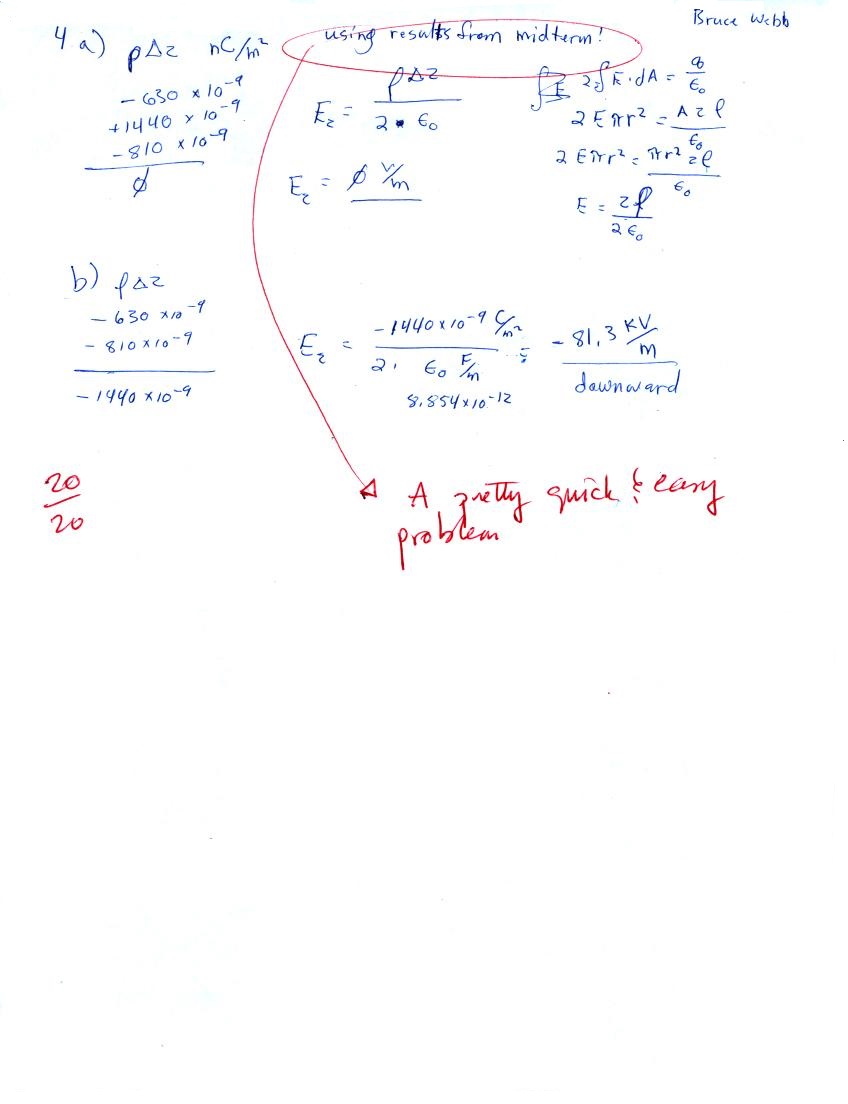 Bruce Webb
4 a) ρΔz nC/m²
using results from midterm!
- 630 × 10⁻⁹
+1440 × 10⁻⁹
- 810 × 10⁻⁹
∅
E_z = ρΔz / 2 • ϵ₀
E_z = ∅ V/m
2∫E·dA = q/ϵ₀
2 E πr² = A z ρ / ϵ₀
2 E πr² = πr² z ρ / ϵ₀
E = zρ / 2ϵ₀
b) ρΔz
- 630 ×10⁻⁹
- 810 ×10⁻⁹
- 1440 ×10⁻⁹
E_z = -1440×10⁻⁹ C/m² / 2· ϵ₀ F/m = - 81.3 KV/m
8.854×10⁻¹²
downward
20/20
A pretty quick & easy
problem